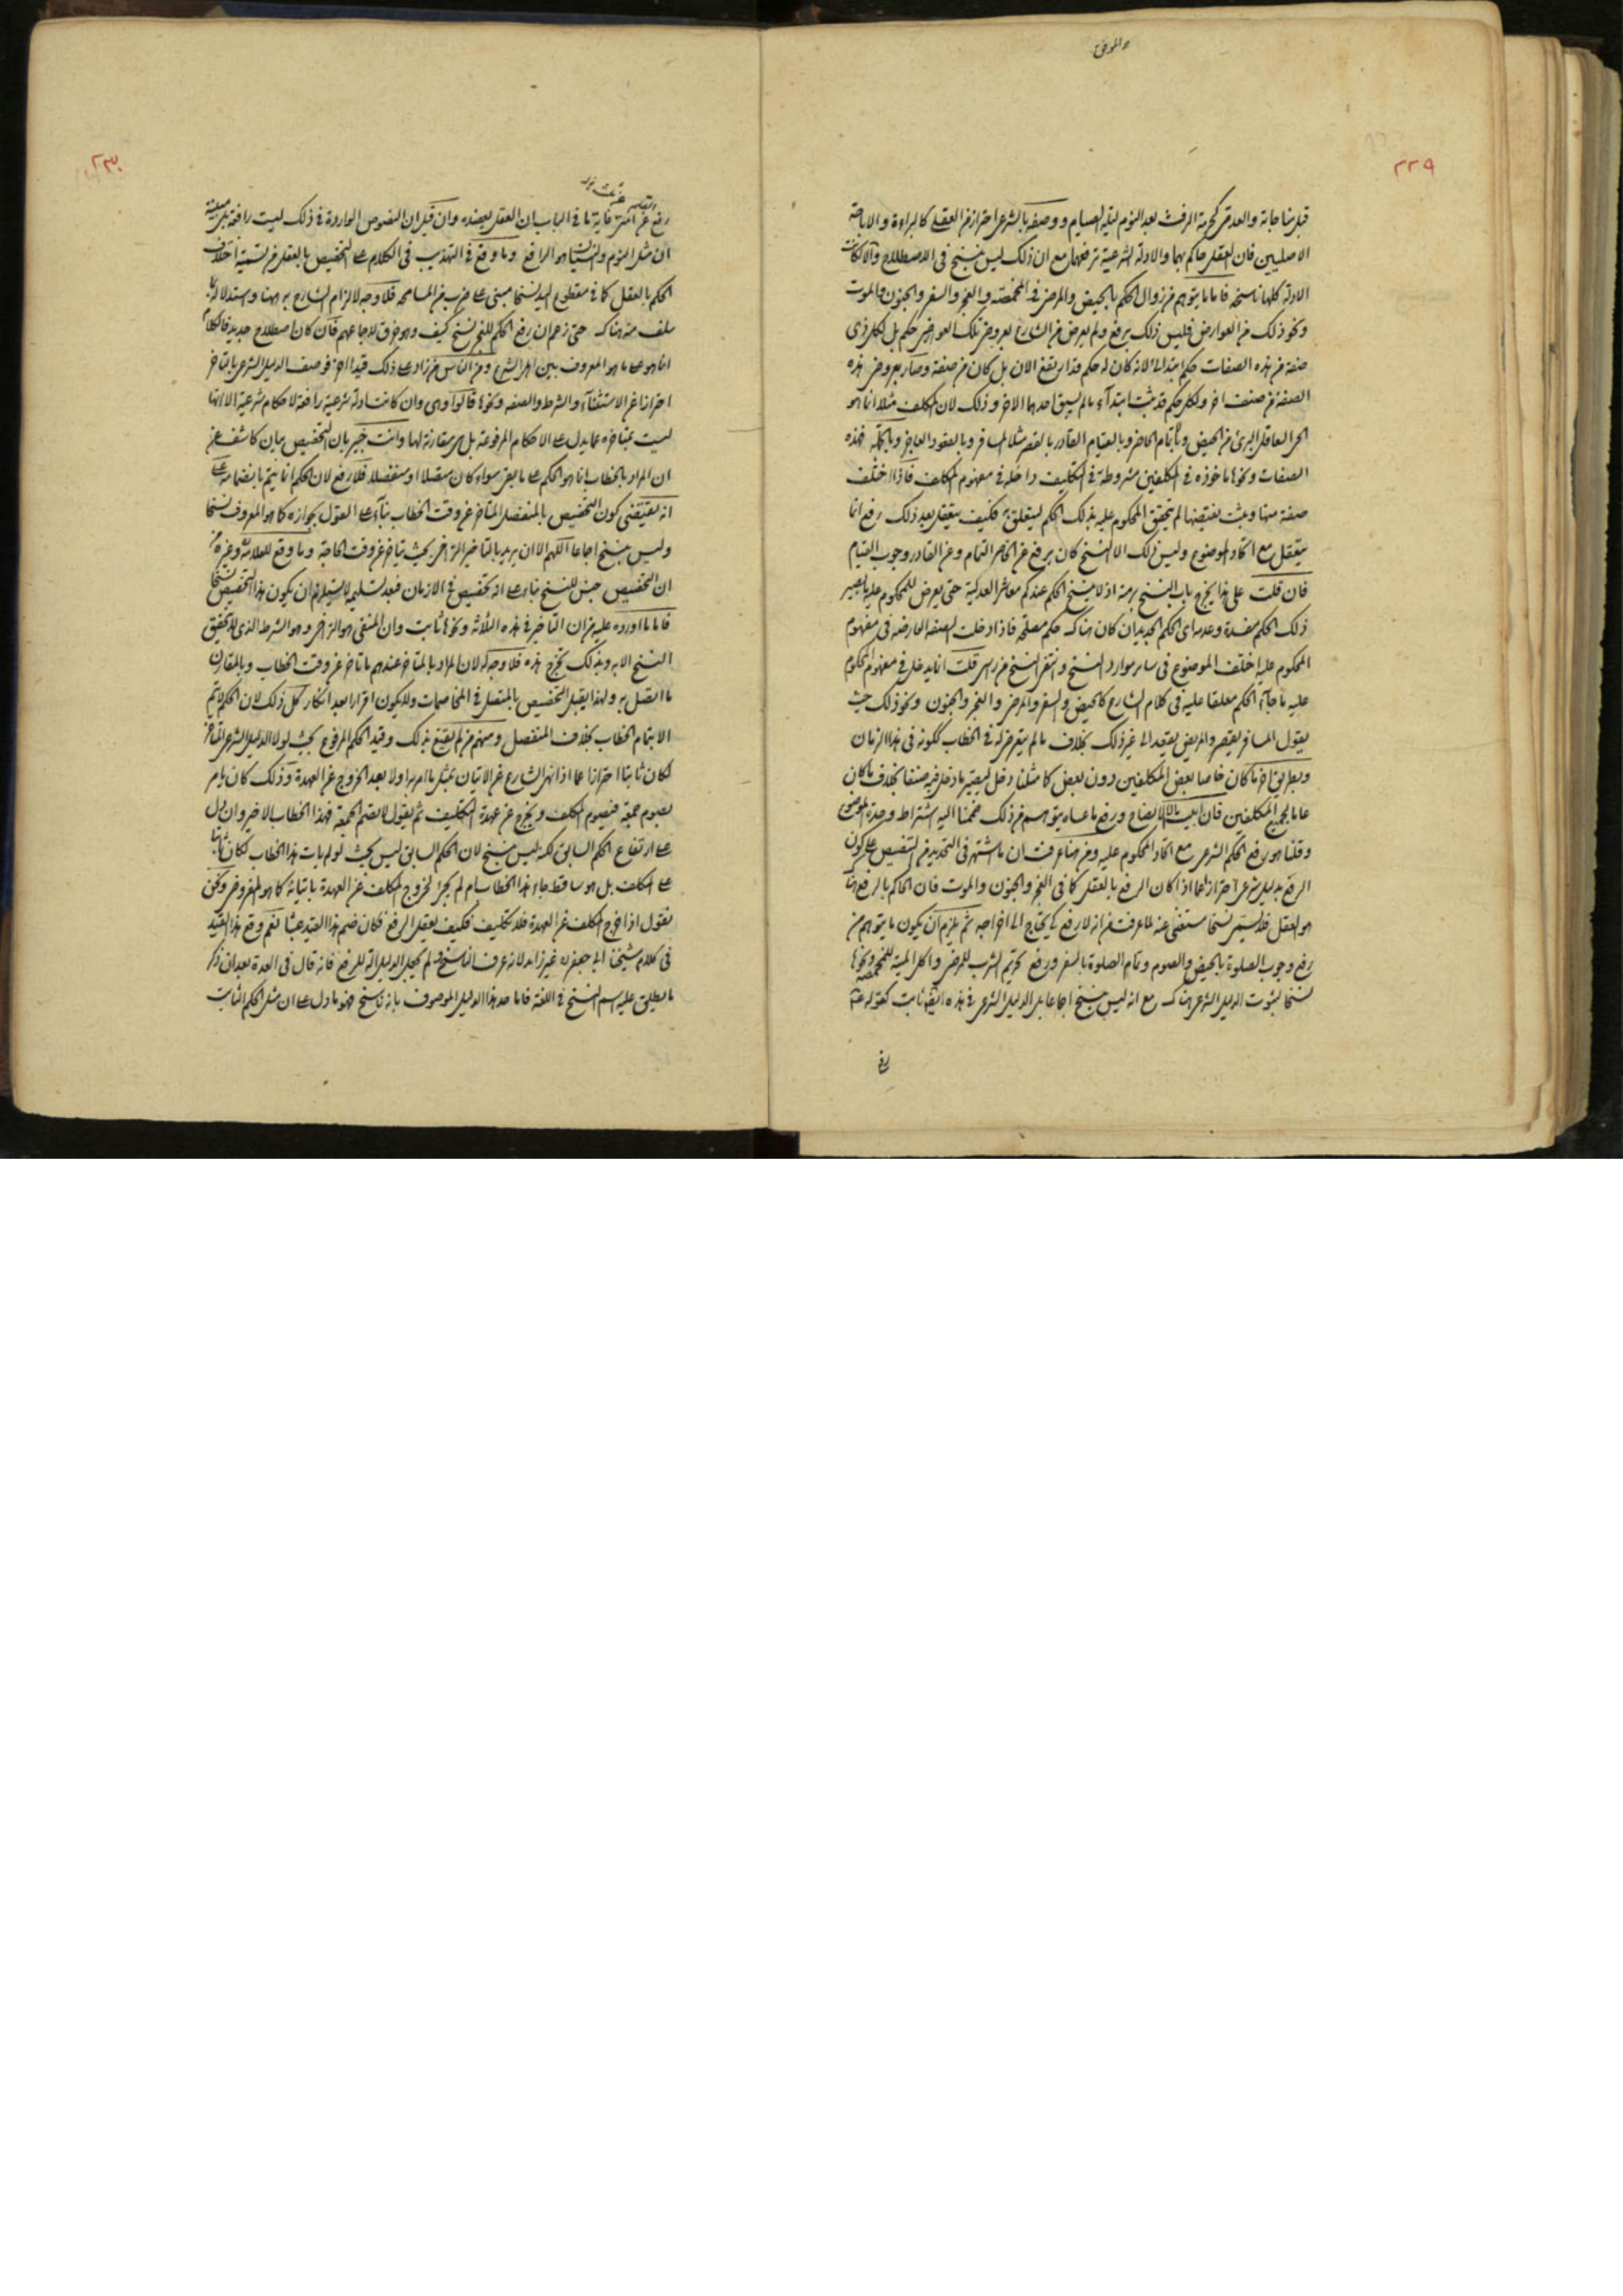 والموفق
٢٢٩
قبل مناجاته والعدتين كحرمة الرفث بعد النوم ليلة الصيام ووصفه بالشرعي احتراز من العقلي كالبراءة والاباحة
الاصليين فان العقل حاكم بهما والادلة الشرعية ترفعهما مع ان ذلك ليس بنسخ في الاصطلاح والا لكانت
الادلة كلها ناسخة فاما ما يتوهم من زوال الحكم بالحيض والمرض في المخمصة والعجز والسفر والجنون والموت
ونحو ذلك من العوارض فليس ذلك برفع ولم يعرض من الشارع بعروض تلك العوارض حكم بل لكل ذي
صفة من هذه الصفات حكم ابتدائي لانه كان له حكم قد ارتفع الان بل كان من صنفه وصار بعروض هذه
الصفة من صنف اخر ولكل حكم قد يثبت ابتداء ما لم يسبق احدهما الاخر وذلك لان المكلف مثلا انما هو
الحر العاقل البرئ من الحيض وباتمام الحاضر وبالقيام القادر بالقصر مثلا المسافر وبالقعود العاجز وبالجملة فهذه
الصفات ونحوها ماخوذة في المكلفين مشروطة في التكليف داخلة في مفهوم المكلف فاذا اختلف
صفة منها وثبت نقيضها لم يتحقق المحكوم عليه بذلك الحكم ليتعلق به فكيف يعقل بعد ذلك رفع انما
يتعقل مع اتحاد الموضوع وليس ذلك الا النسخ كان يرفع عن الحاضر التمام وعن القادر وجوب القيام
فان قلت على هذا يخرج باب النسخ برمته اذ لا ينسخ الحكم عندكم معاشر العدلية حتى يعرض للمحكوم عليه ما يصير
ذلك الحكم مفسدة وعدمه اي الحكم الجديد ان كان هناك حكم مصلحة فاذا دخلت الصفة العارضة في مفهوم
المحكوم عليه اختلف الموضوع في ساير موارد النسخ وانتفى النسخ من راس قلت انما يدخل في مفهوم المحكوم
عليه ما جاء الحكم معلقا عليه في كلام الشارع كالحيض والسفر والمرض والعجز والجنون ونحو ذلك حيث
يقول المسافر يقصر والمريض يقعد الى غير ذلك بخلاف ما لم يتعرض له في الخطاب ككونه في هذا الزمان
وبطريق اخر ما كان خاصا ببعض المكلفين دون بعض كما مثلنا دخل ليصير ما دخل فيه صنفا بخلاف ما كان
عاما لجميع المكلفين فان ابيت الا الايضاح ورفع ما عساه يتوهم من ذلك ضممنا اليه اشتراط وحدة الموضوع
وقلنا هو رفع الحكم الشرعي مع اتحاد المحكوم عليه ومن هنا عرفت ان ما اشتهر في التحديد من التنصيص على كون
الرفع بدليل شرعي احترازا عما اذا كان الرفع بالعقل كما في العجز والجنون والموت فان الحاكم بالرفع هنا
هو العقل فلا يسمى نسخا مستغنى عنه لما عرفت من انه لا رفع كي يحتاج الى اخراجه ثم يلزم ان يكون ما يتوهم من
رفع وجوب الصلوة بالحيض والصوم وتمام الصلوة بالسفر ورفع تحريم الشرب للمرض واكل الميتة للمخمصة ونحوها
نسخا لثبوت الدليل الشرعي هناك مع انه ليس بنسخ اجماعا بل الدليل الشرعي في هذه ايضا ثابت كقوله ع
رفع
٢٣٠
رفع عن امتي غاية ما في الباب ان العقل يعضده وان قيل ان النصوص الواردة في ذلك ليست رافعة بل مبينة
ان مثل النوم والنسيان هو الرافع وما وقع في التهذيب في الكلام على التخصيص بالعقل من تسمية اختلاف
الحكم بالعقل كما في مقطوع اليد نسخا مبني على ضرب من المسامحة فلا وجه لالزام الشارح به ههنا واستدلاله بما
سلف منه هناك حتى زعم ان رفع الحكم للعجز نسخ كيف وهو خرق لاجماعهم فان كان اصطلاح جديد فالكلام
انما هو على ما هو المعروف بين اهل الشرع ومن الناس من زاد على ذلك قيدا اخر فوصف الدليل الشرعي بالتاخر
احترازا عن الاستثناء والشرط والصفة ونحوها قالوا وهي وان كانت ادلة شرعية رافعة لاحكام شرعية الا انها
ليست بمتاخرة عما يدل على الاحكام المرفوعة بل هي مقارنة لها وانت خبير بان التخصيص بيان كاشف عن
ان المراد بالخطاب انما هو الحكم على ما بقي سواء كان متصلا او منفصلا فلا رفع لان الحكم انما يتم بانضمامه على
انه يقتضي كون التخصيص بالمنفصل المتاخر عن وقت الخطاب بناء على القول بجوازه كما هو المعروف نسخا
وليس بنسخ اجماعا اللهم الا ان يريد بالتاخير التراخي بحيث يتاخر عن وقت الحاجة وما وقع للعلامة وغيره من
ان التخصيص جنس للنسخ بناء على انه تخصيص في الازمان فبعد تسليمه لا يستلزم ان يكون هذا التخصيص نسخا
فاما ما اورده عليه من ان التاخير في هذه الثلاثة ونحوها ثابت وان المنفي هو التراخي وهو الشرط الذي لا يتحقق
النسخ الا به وبذلك تخرج هذه فلا وجه له لان المراد بالمتاخر عندهم ما تاخر عن وقت الخطاب وبالمقارن
ما اتصل به ولهذا يقبل التخصيص بالمتصل في المخاصمات ولا يكون اقرارا بعد انكار كل ذلك لان الحكم لا يتم
الا بتمام الخطاب بخلاف المنفصل ومنهم من لم يقنع بذلك وقيد الحكم المرفوع بحيث لولا الدليل الشرعي المتاخر
لكان ثابتا احترازا عما اذا نهى الشارع عن الاتيان بمثل ما امر به اولا بعد الخروج عن العهدة وذلك كان يامر
بصوم جمعة فيصوم المكلف ويخرج عن عهدة التكليف ثم يقول لا تصم الجمعة فهذا الخطاب الاخير وان دل
على ارتفاع الحكم السابق لكنه ليس بنسخ لان الحكم السابق ليس بحيث لو لم يات هذا الخطاب لكان ثابتا
على المكلف بل هو ساقط جاء هذا الخطاب ام لم يجئ لخروج المكلف عن العهدة باتيانه كما هو المفروض ونحن
نقول اذا خرج المكلف عن العهدة فلا تكليف فكيف يعقل الرفع فكان ضم هذا القيد عبثا نعم وقع هذا القيد
في كلام شيخنا ابي جعفر ره غير زائد لانه عرف الناسخ ولم يجعل الدليل الة للرفع فانه قال في العدة بعد ان ذكر
ما يطلق عليه اسم النسخ في اللغة فاما حد هذا الدليل الموصوف بانه ناسخ فهو ما دل على ان مثل الحكم الثابت